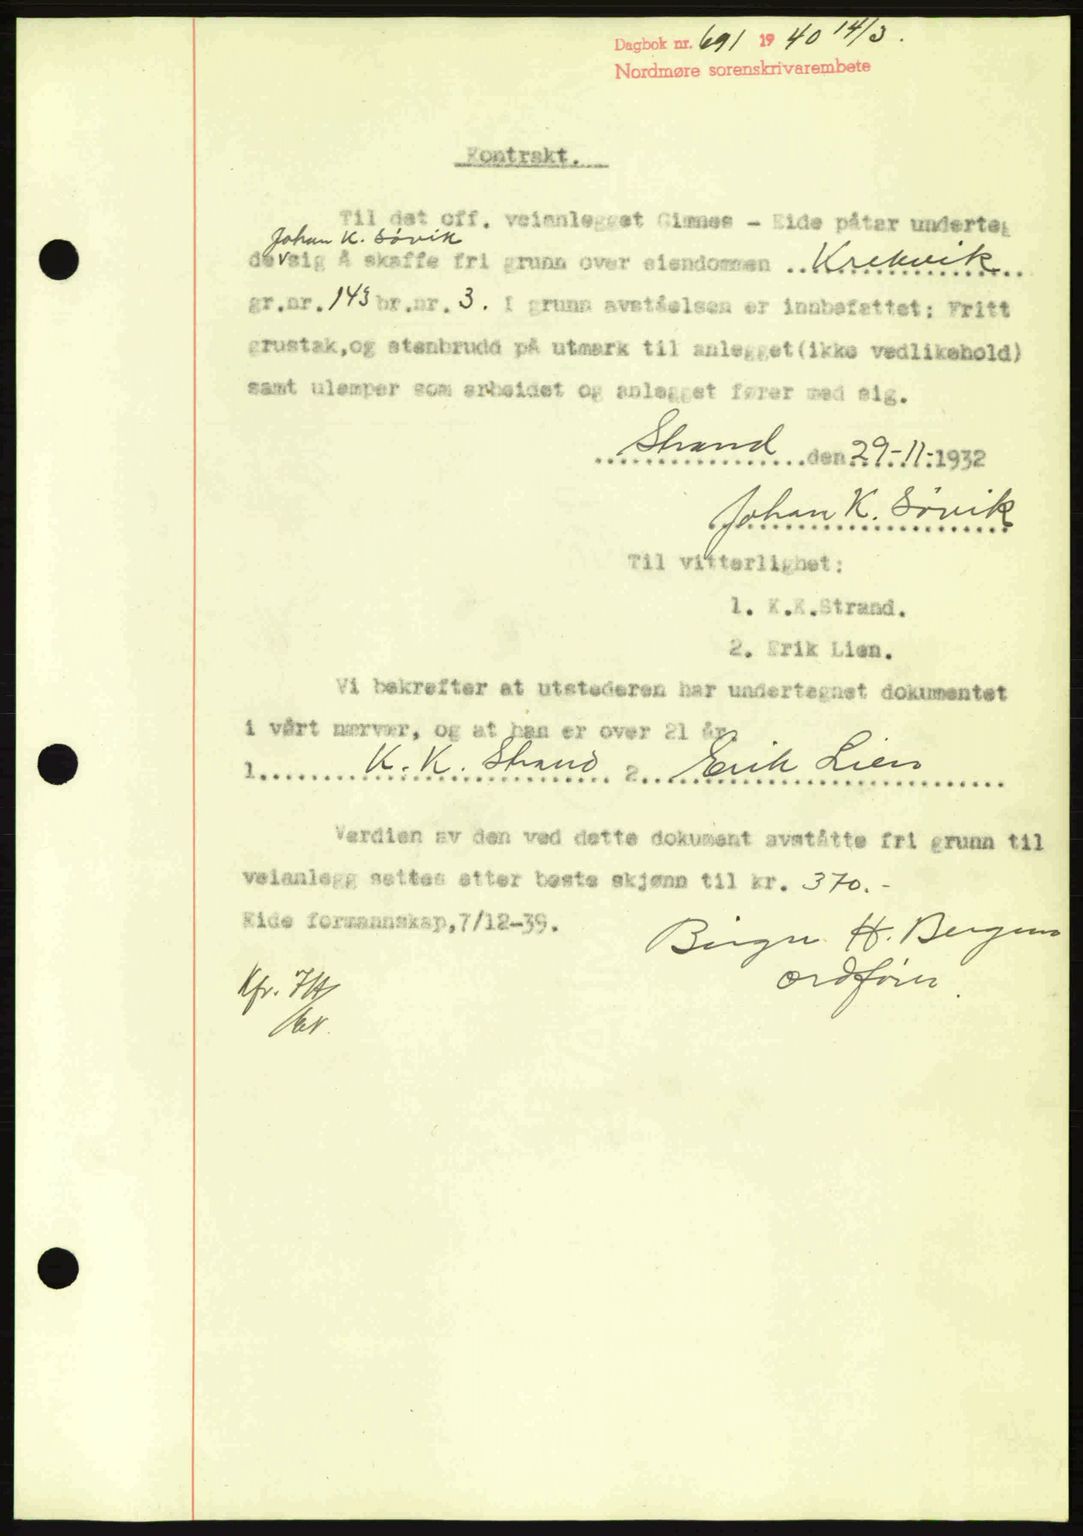 Dagbok nr. 691 1940 14/3.
Nordmøre sorenskrivarembete
Kontrakt.
Til det off. veianlegget Gimnes - Eide påtar underteg
Johan K. Søvik
de sig å skaffe fri grunn over eiendommen ..Krekvik..
gr.nr. 143 br.nr. 3. I grunn avståelsen er innbefattet: Fritt
grustak,og stenbrudd på utmark til anlegget(ikke vedlikehold)
samt ulemper som arbeidet og anlegget fører med sig.
Strand den 29-11-1932
Johan K. Søvik
Til vitterlighet:
1. K.K.Strand.
2. Erik Lien.
Vi bekrefter at utstederen har undertegnet dokumentet
i vårt nærvær, og at han er over 21 år
1. K. K. Strand 2. Erik Lien
Verdien av den ved dette dokument avståtte fri grunn til
veianlegg settes etter beste skjønn til kr. 370.-
Eide formannskap,7/12-39.
Birger H. Bergem
ordfører.
Kfr.